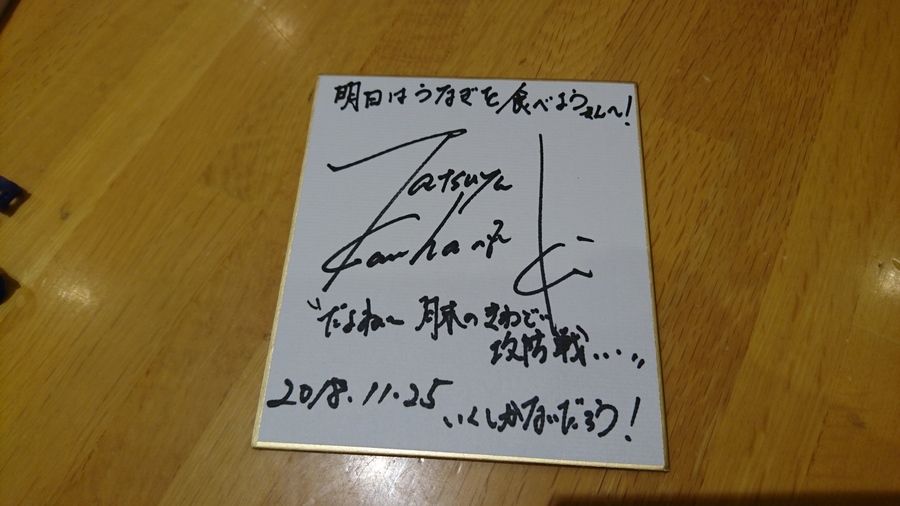 明日はうなぎを食べようさん〜!
Tatsuya
"だよね〜 月末のきわどい
攻防戦...."
2018.11.25
いくしかないだろう!